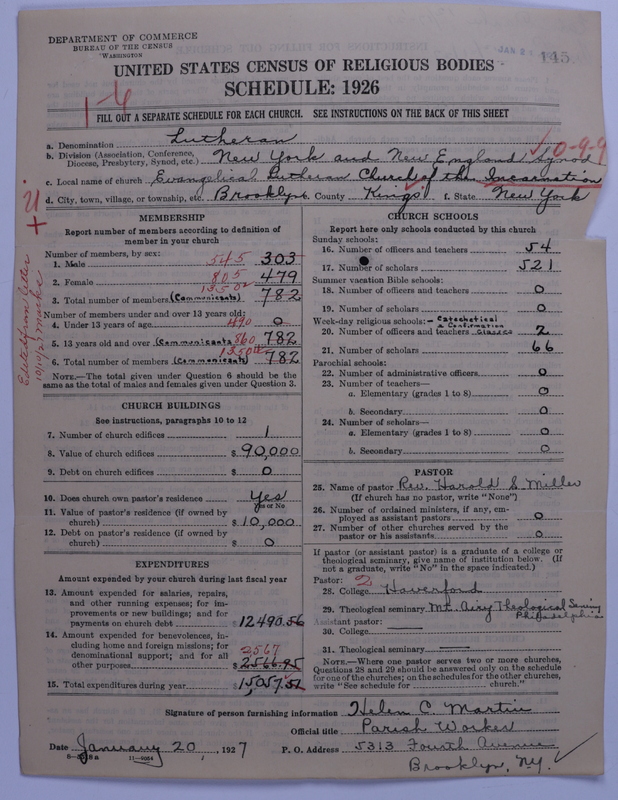 DEPARTMENT OF COMMERCE
BUREAU OF THE CENSUS
WASHINGTON
145
UNITED STATES CENSUS OF RELIGIOUS BODIES
SCHEDULE: 1926
1-6
FILL OUT A SEPARATE SCHEDULE FOR EACH CHURCH. SEE INSTRUCTIONS ON THE BACK OF THIS SHEET
a. Denomination Lutheran
b. Division (Association, Conference, Diocese, Presbytery, Synod, etc.) New York and New England Synod 0-9-9
c. Local name of church Evangelical Lutheran Church of the Incarnation
d. City, town, village, or township, etc. Brooklyn e. County Kings f. State New York
MEMBERSHIP
Report number of members according to definition of
member in your church
Number of members, by sex:
1. Male 545 303
2. Female 805 479
3. Total number of members (Communicants) 1350 782
Number of members under and over 13 years old:
4. Under 13 years of age 490 0
5. 13 years old and over (Communicants) 860 782
6. Total number of members (Communicants) 1350 782
NOTE.—The total given under Question 6 should be the
same as the total of males and females given under Question 3.
Edited from letter
10/10/27
CHURCH BUILDINGS
See instructions, paragraphs 10 to 12
7. Number of church edifices 1
8. Value of church edifices $ 90,000
9. Debt on church edifices $ 0
10. Does church own pastor's residence Yes
Yes or No
11. Value of pastor's residence (if owned by
church) $ 10,000
12. Debt on pastor's residence (if owned by
church) $ 0
EXPENDITURES
Amount expended by your church during last fiscal year
13. Amount expended for salaries, repairs,
and other running expenses; for im-
provements or new buildings; and for
payments on church debt $ 12490.56
14. Amount expended for benevolences, in-
cluding home and foreign missions; for
denominational support; and for all
other purposes 2567 $ 2566.95
15. Total expenditures during year $ 15,057.51
CHURCH SCHOOLS
Report here only schools conducted by this church
Sunday schools:
16. Number of officers and teachers 54
17. Number of scholars 521
Summer vacation Bible schools:
18. Number of officers and teachers 0
19. Number of scholars 0
Week-day religious schools:— Catechetical & Confirmation
20. Number of officers and teachers Classes 2
21. Number of scholars 66
Parochial schools:
22. Number of administrative officers 0
23. Number of teachers—
a. Elementary (grades 1 to 8) 0
b. Secondary 0
24. Number of scholars—
a. Elementary (grades 1 to 8) 0
b. Secondary 0
PASTOR
25. Name of pastor Rev. Harold S. Miller
(If church has no pastor, write "None")
26. Number of ordained ministers, if any, em-
ployed as assistant pastors 0
27. Number of other churches served by the
pastor or his assistants 0
If pastor (or assistant pastor) is a graduate of a college or
theological seminary, give name of institution below. (If
not a graduate, write "No" in the space indicated.)
Pastor: 2
28. College Haverford
29. Theological seminary Mt. Airy Theological Seminary
Philadelphia
Assistant pastor:
30. College
31. Theological seminary
NOTE.—Where one pastor serves two or more churches,
Questions 28 and 29 should be answered only on the schedule
for one of the churches; on the schedules for the other churches,
write "See schedule for church."
Signature of person furnishing information Helen C. Martin
Official title Parish Worker
Date January 20, 1927 P. O. Address 5313 Fourth Avenue
Brooklyn, N.Y.